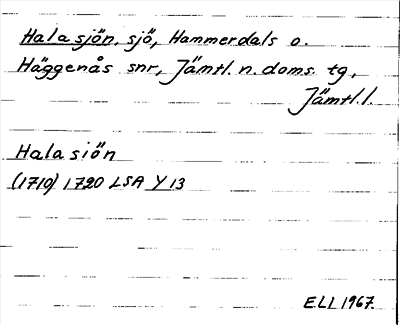 Halasjön, sjö, Hammerdals o.
Häggenås snr, Jämtl. n. doms. tg,
Jämtl. l.
Hala siön
(1710) 1720 LSA Y 13
E.L.L 1967.